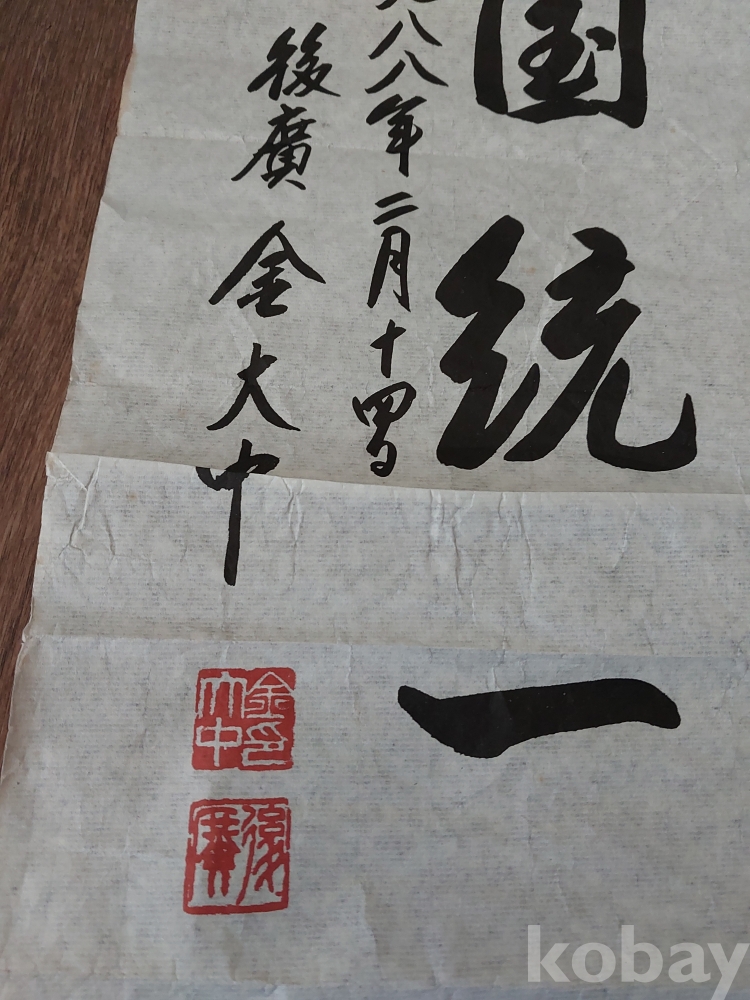 国統一
八八年二月十四日
後廣 金大中
金大中印
後廣
kobay